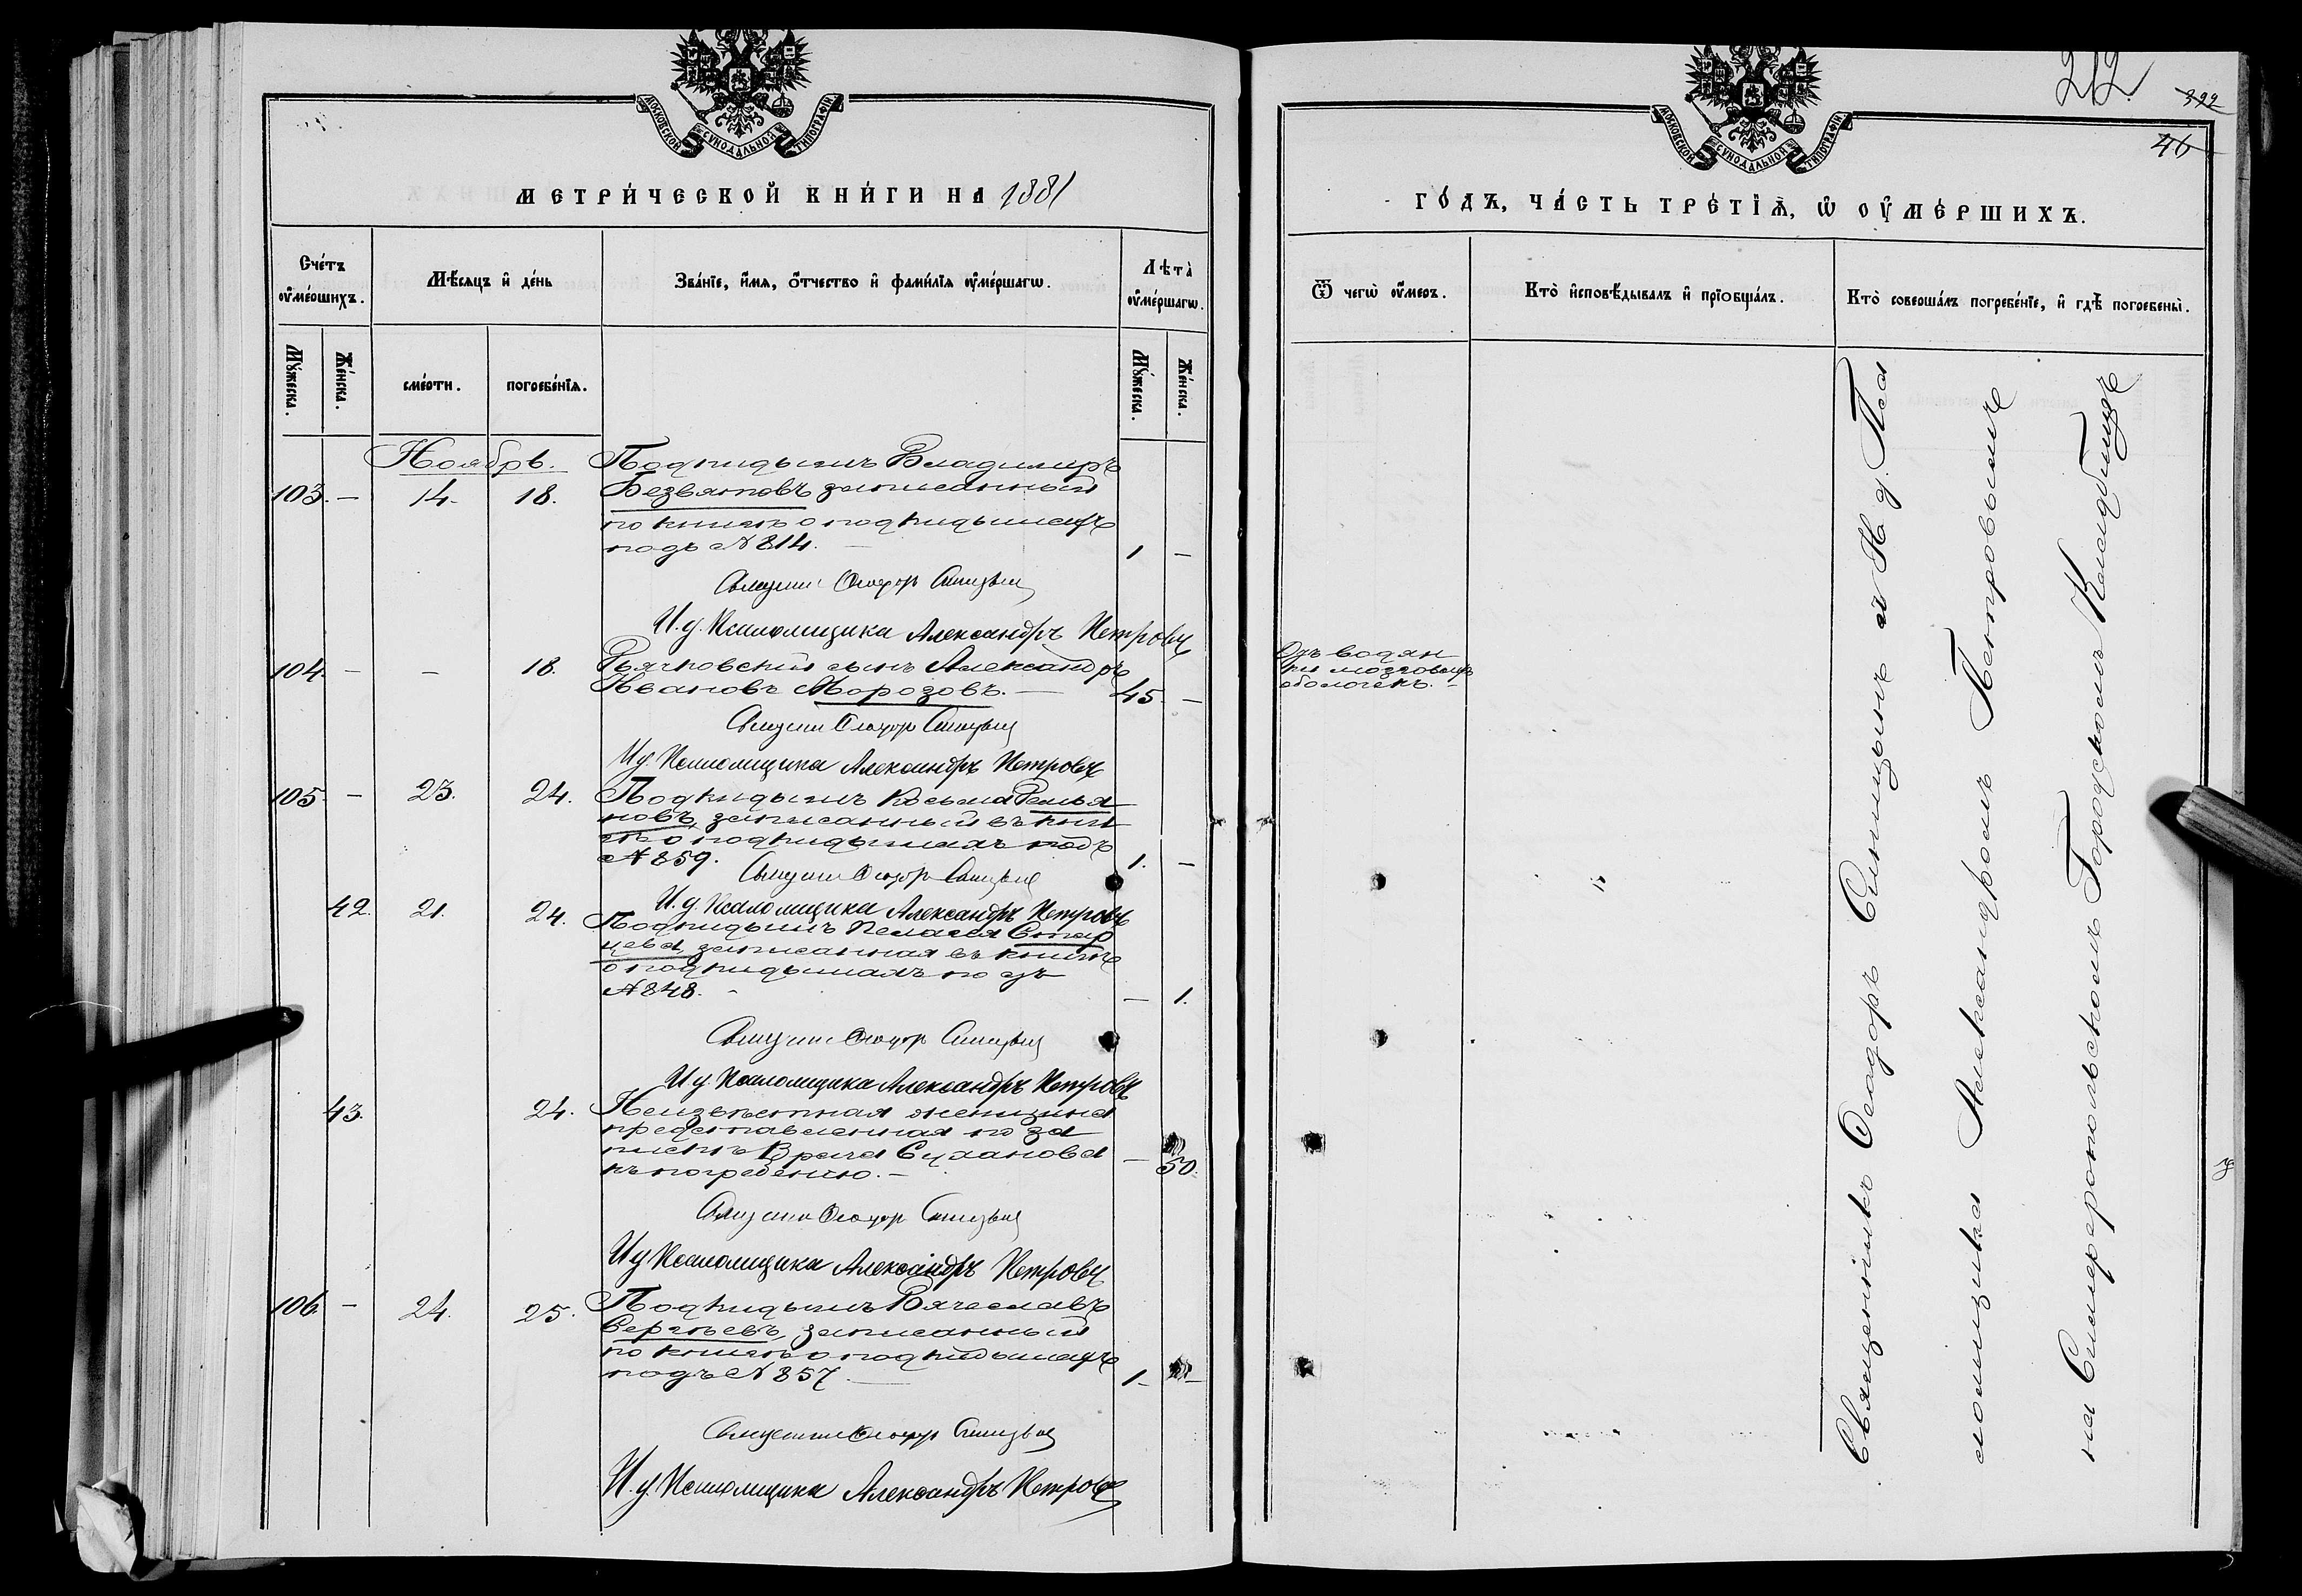 МОСКОВСКОЙ СУНОДАЛЬНОЙ ТИПОГРАФІИ
МЕТРИ́ЧЕСКОЙ КНИ́ГИ НА 1881
Сче́тъ ᲂу҆ме́ршихъ.
Мѣ́сяцъ и҆ де́нь
Зва́нїе, и҆́мя, ѻ҆́тчество и҆ фами́лїя ᲂу҆ме́ршагѡ.
Лѣта̀ ᲂу҆ме́ршагѡ.
Мꙋ́жеска.
Же́нска.
сме́рти.
погребе́нїя.
Мꙋ́жеска.
Же́нска.
Ноябрь.
Подкидышъ Владимиръ
103. — 14. 18. Безвятовъ записанный
по книгѣ о подкидышахъ
подъ № 814. — 1 —
Священникъ Ѳеодоръ Синицынъ
И. д. Псаломщика Александръ Петровъ
104. — — 18. Рьячковскій сынъ Александръ
Ивановъ Морозовъ. — 45. —
Священникъ Ѳеодоръ Синицынъ
И д. Псаломщика Александръ Петровъ
105. — 23. 24. Подкидышъ Косьма Демья
новъ, записанный въ кни
гѣ о подкидышахъ подъ
№ 859. 1. —
Священникъ Ѳеодоръ Синицынъ
И. д. Псаломщика Александръ Петровъ
42. 21. 24. Подкидышъ Пелагея Стар
цева, записанная въ книгѣ
о подкидышахъ подъ
№ 848. — 1.
Священникъ Ѳеодоръ Синицынъ
И д. Псаломщика Александръ Петровъ
43. 24. Неизвѣстная женщина
представленная по за
пискѣ Врача Суханова
къ погребенію. — — 50.
Священникъ Ѳеодоръ Синицынъ
И д Псаломщика Александръ Петровъ
106. — 24. 25. Подкидышъ Вячеславъ
Сергѣевъ, записанный
по книгѣ о подкидышахъ
подъ № 857. — 1 —
Священникъ Ѳеодоръ Синицынъ
И. д. Псаломщика Александръ Петровъ
212
392
46
МОСКОВСКОЙ СУНОДАЛЬНОЙ ТИПОГРАФІИ
ГО́ДЪ, ЧА́СТЬ ТРЕ́ТЇѦ, Ѡ҆ ОУ҆МЕ́РШИХЪ.
Ѿ чегѡ̀ ᲂу҆́меръ.
Кто̀ и҆сповѣ́дывалъ и҆ прїобща́лъ.
Кто̀ соверша́лъ погребе́нїе, и҆ гдѣ̀ погребены̀.
Отъ водян
ки мозговыхъ
оболочекъ. —
Священникъ Ѳеодоръ Синицынъ и И д. Пса
ломщика Александромъ Петровымъ
на Симферопольскомъ Городскомъ Кладбищѣ